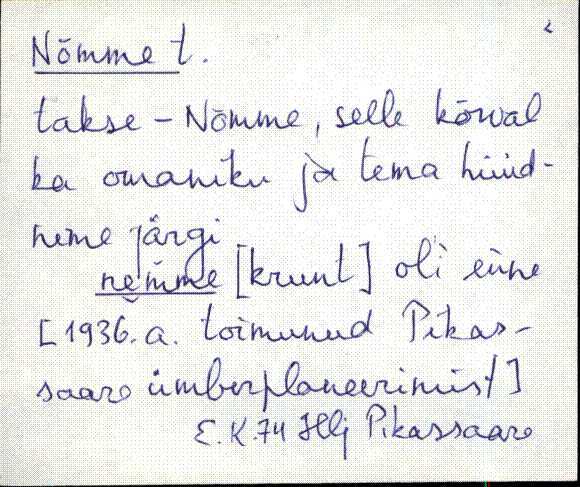 2
Nõmme t.
takse - Nõmme, selle kõrval
ka omaniku ja tema hüüd-
nime järgi
nemme [krunt] oli enne
[1936. a. toimunud Pikas-
saare ümberplaneerimist]
E.K. 74 Hlj Pikassaare